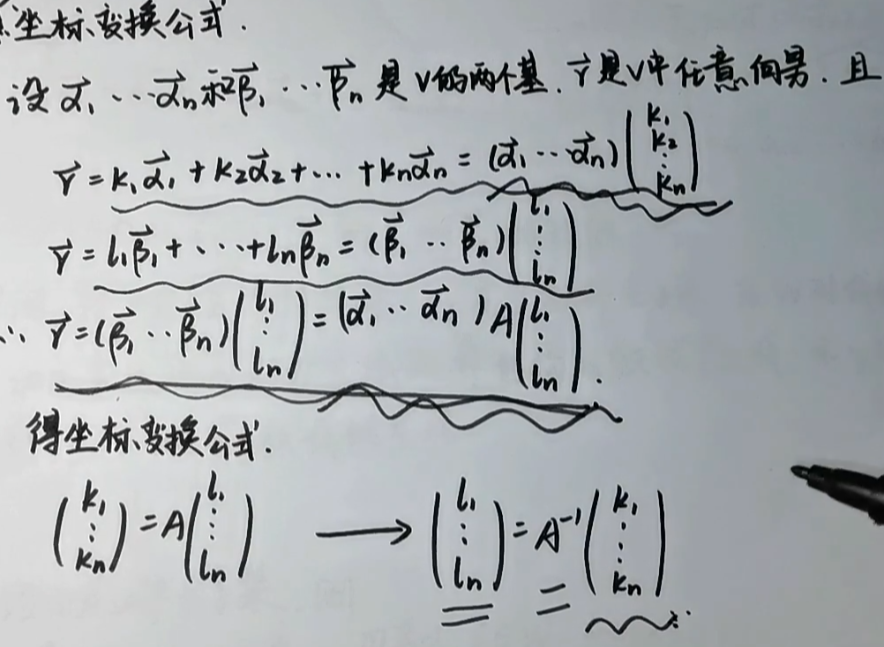 坐标变换公式.
设 α⃗₁ ⋯ α⃗ₙ 和 β⃗₁ ⋯ β⃗ₙ 是V的两个基. γ⃗是V中任意向男. 且
γ⃗ = k₁α⃗₁ + k₂α⃗₂ + ⋯ + kₙα⃗ₙ = (α⃗₁ ⋯ α⃗ₙ) (k₁ k₂ ⋮ kₙ)
γ⃗ = l₁β⃗₁ + ⋯ + lₙβ⃗ₙ = (β⃗₁ ⋯ β⃗ₙ) (l₁ ⋮ lₙ)
∴ γ⃗ = (β⃗₁ ⋯ β⃗ₙ) (l₁ ⋮ lₙ) = (α⃗₁ ⋯ α⃗ₙ) A (l₁ ⋮ lₙ).
得坐标变换公式.
(k₁ ⋮ kₙ) = A (l₁ ⋮ lₙ) ⟶ (l₁ ⋮ lₙ) = A⁻¹ (k₁ ⋮ kₙ)